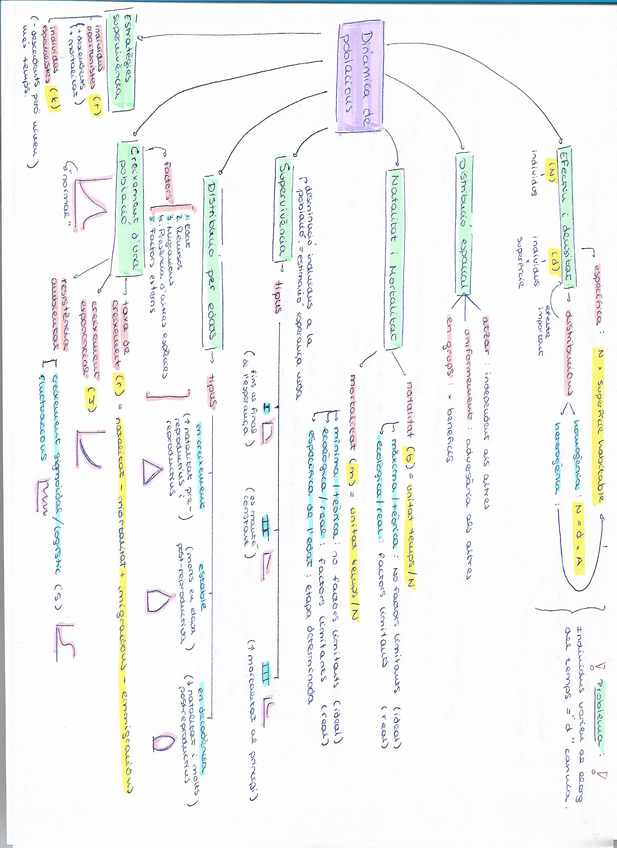 Dinàmica de
poblacions
Efectiu i densitat
(N)
individus
(d)
individus
x
superfície
específica: N x superfície habitable
distribucions
efecte
important
homogènia: N = d x A
heterogènia:
! Problema: !
Individus varien al llarg
del temps = "d" canvia.
Distribució espacial
atzar: independent als altres
uniformement: adversària als altres
en grups: x beneficis
Natalitat i Mortalitat
natalitat (b) = unitat temps/N
màxima/teòrica: No factors limitants (ideal)
ecològica/real: factors limitants (real)
mortalitat (m) = unitat temps/N
mínima/teòrica: no factors limitants (ideal)
ecològica/real: factors limitants (real)
específica de l'edat: etapa determinada
Supervivència
disminució individus a la
població. = estimació esperança vida
tipus
I
(fins al final
de l'esperança)
II
(es manté
constant)
III
(+ mortalitat al principi)
Distribució per edats
tipus
en creixement
(+ natalitat pre-
reproductius i
reproductius)
estable
(morts en etapa
post-reproductiva)
en decadència
(↓ natalitat i molts
postreproductius)
Creixement d'una
població
factors
1. Edat
2. Recursos
3. Migracions
4. Presència d'altres espècies
5. Factors externs
"normal"
taxa de
creixement (r) = natalitat - mortalitat + imigracions - emmigracions
creixement
exponencial (J)
resistència
ambiental
creixement sigmoidal/logístic (S)
fluctuacions
Estratègies
supervivència
individus
oportunistes (r)
(+ descendents
+ mortalitat)
individus
especialistes (k)
(- descendents però viuen
més temps.)